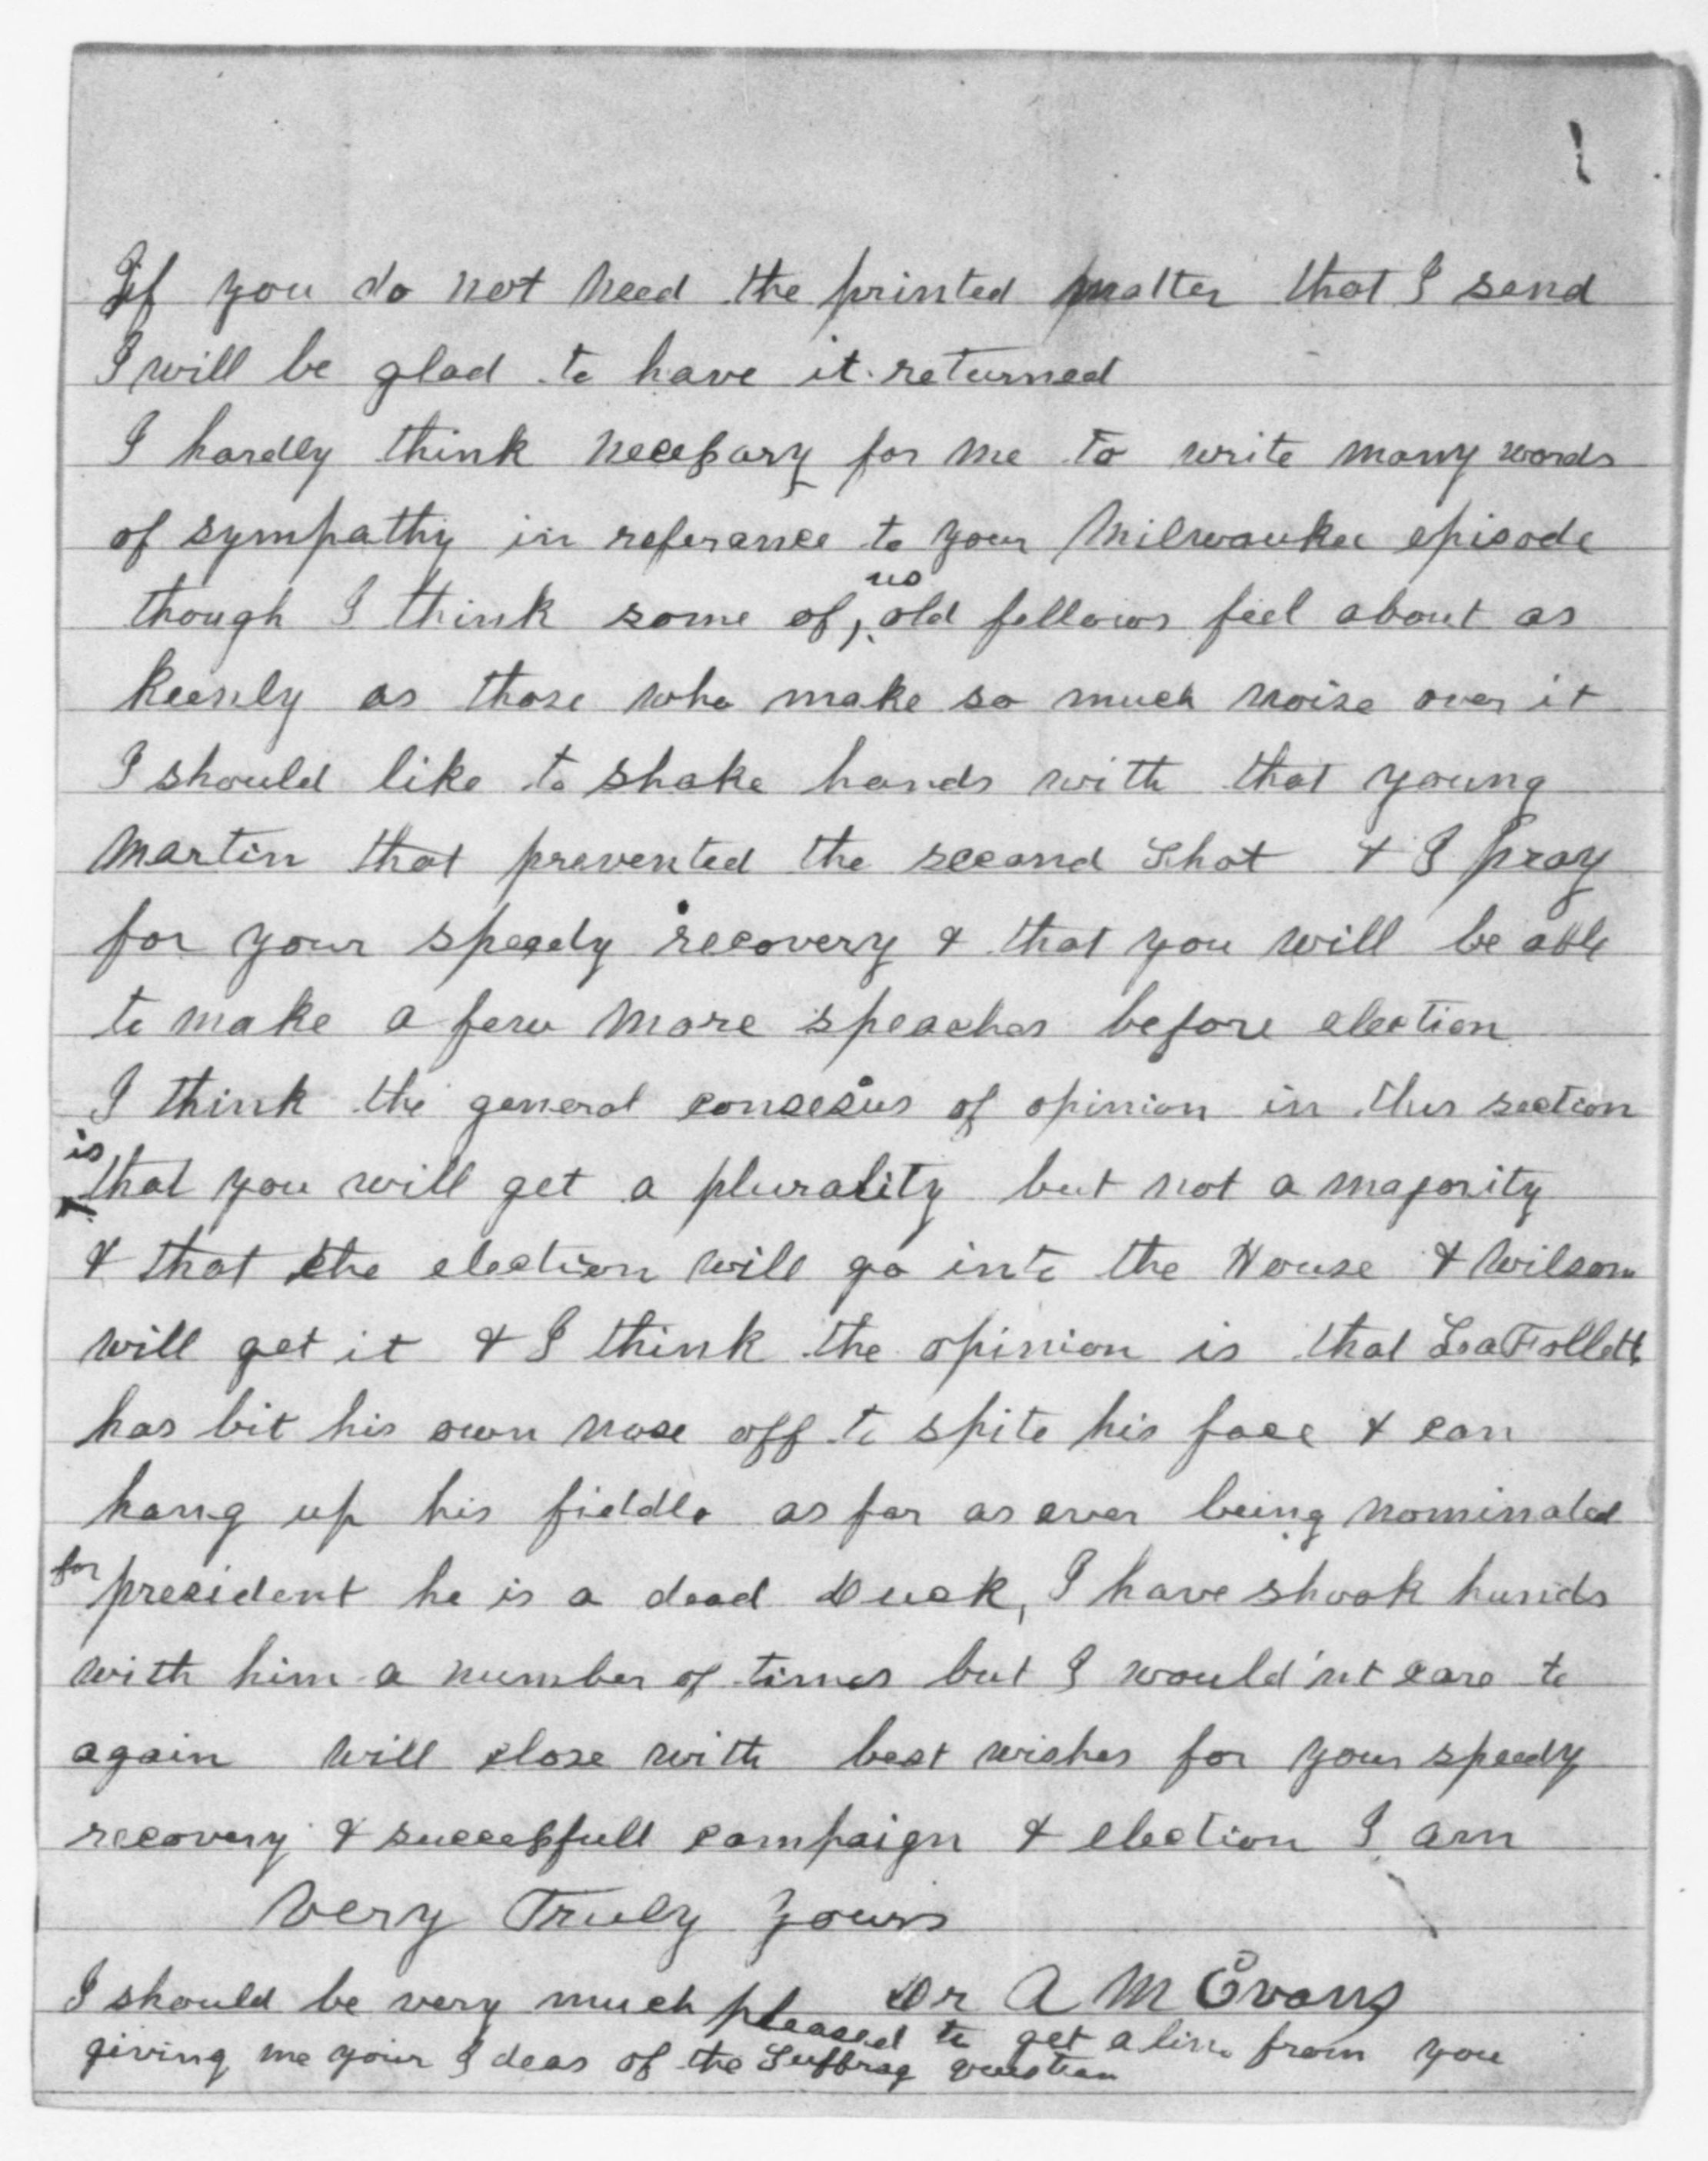 If you do not need the printed matter that I send
I will be glad to have it returned
I hardly think necessary for me to write many words
of sympathy in referance to your Milwaukee episode
though I think some of us old fellows feel about as
keenly as those who make so much noise over it
I should like to shake hands with that young
Martin that prevented the second shot & I pray
for your speedy recovery & that you will be able
to make a few more speaches before election
I think the general concesus of opinion in this section
is that you will get a plurality but not a majority
& that the election will go into the House & Wilson
will get it & I think the opinion is that LaFollett
has bit his own nose off to spite his face & can
hang up his fiddle as far as ever being nominated
for president he is a dead Duck, I have shook hands
with him a number of times but I would'nt care to
again will close with best wishes for your speedy
recovery & successfull campaign & election I am
Very Truly Yours
Dr A M Evans
I should be very much pleased to get a line from you
giving me your Ideas of the Suffrag question